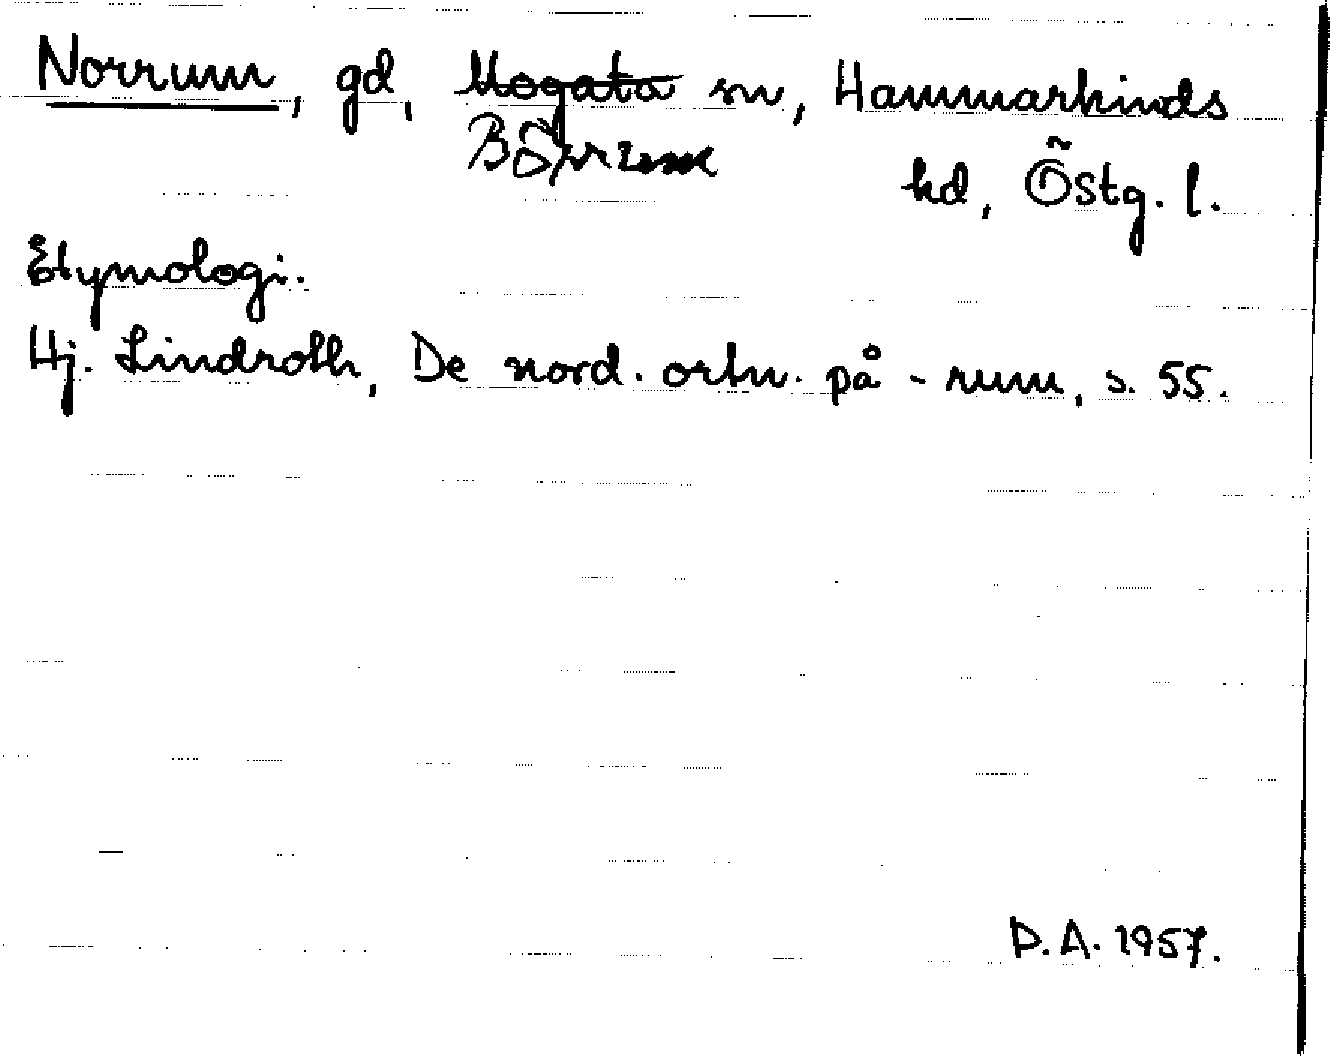 Norrum, gd, Mogata sn, Hammarkinds
Börrum
hd, Östg. l.
Etymologi.
Hj. Lindroth, De nord. ortn. på -rum, s. 55.
D.A. 1957.